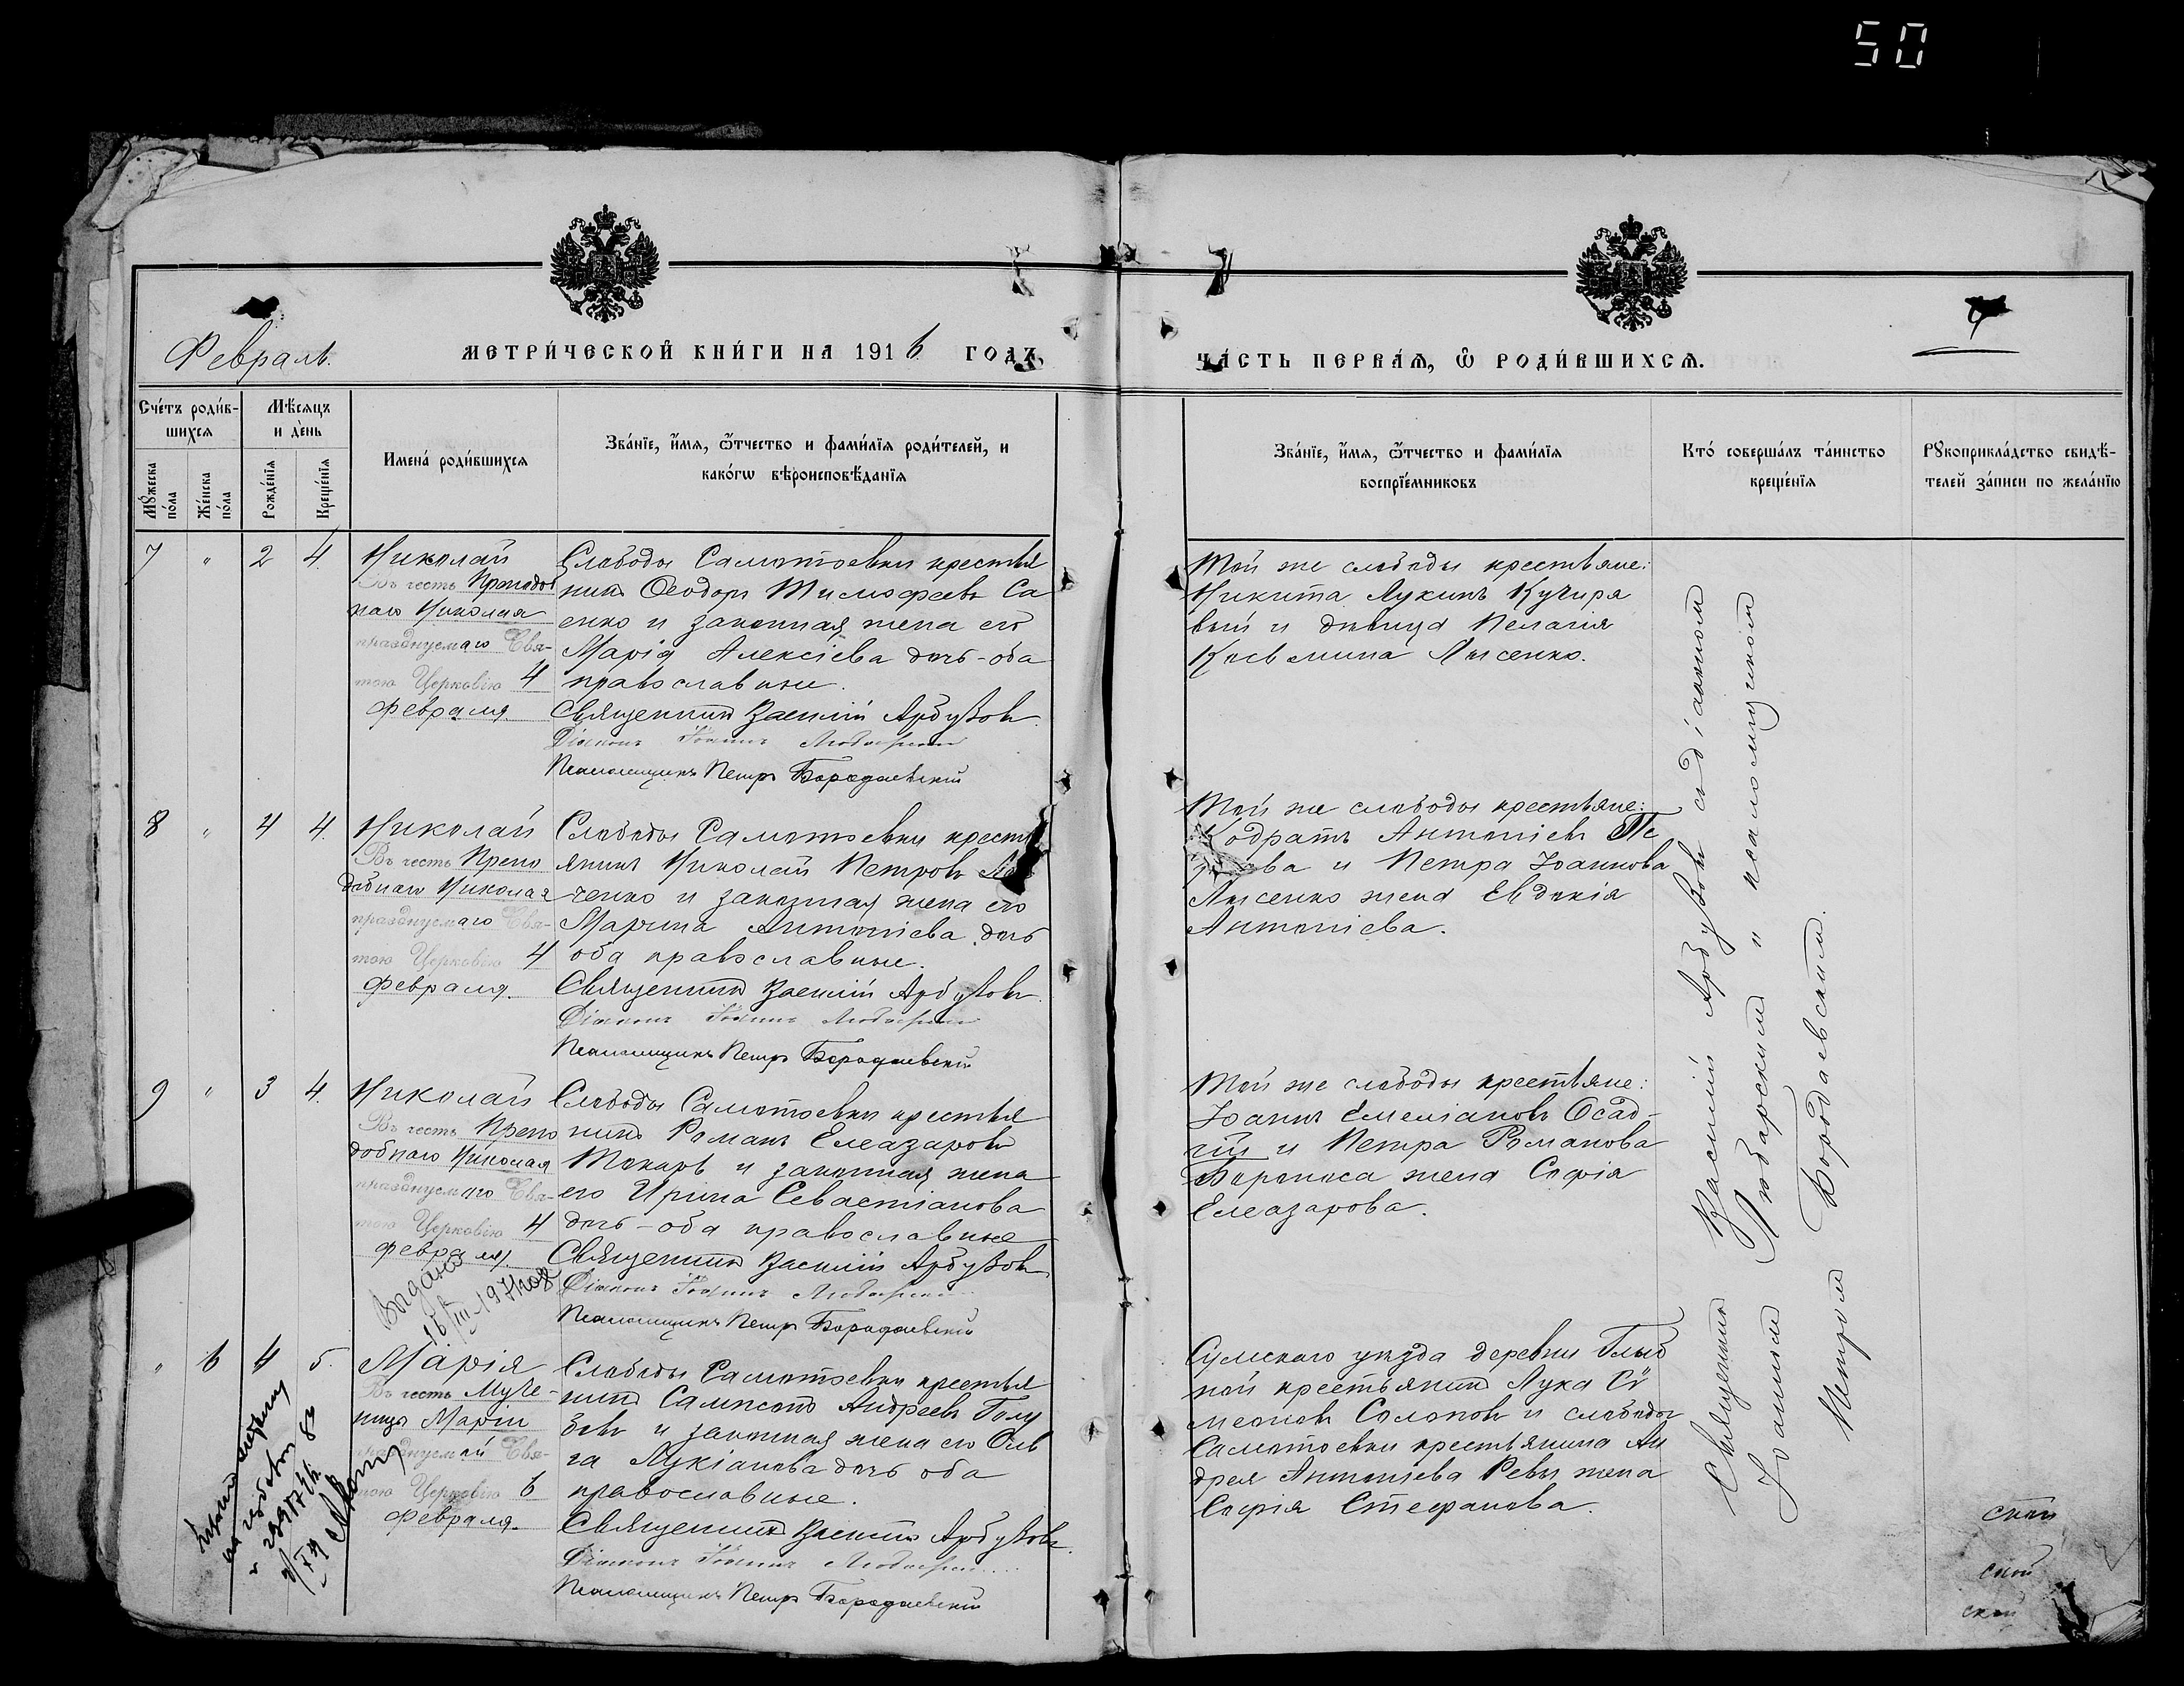 50
Февраль.
МЕТРИ́ЧЕСКОЙ КНИ́ГИ НА 1916 ГОДЪ
ЧА́СТЬ ПЕРВАЯ, Ѽ РОДИ́ВШИХСЯ.
Сче́тъ роди́в-
шихся
Мѣ́сяцъ
и де́нь
Мꙋ́жеска
по́ла
Же́нска
по́ла
Рожде́нїя
Креще́нїя
Имена́ роди́вшихся
Зва́нїе, и҆́мя, ѻ҆́тчество и фами́лїя роди́телей, и
како́гѡ вѣроисповѣ́данїя
Зва́нїе, и҆́мя, ѻ҆́тчество и фами́лїя
воспрїе́мниковъ
Кто́ соверша́лъ та́инство
креще́нїя
Рꙋкоприкла́дство свидѣ́-
телей за́писи по жела́нїю
7 " 2 4.
Николай
Въ честь
наго Николая
празднуемаго Свя-
тою Церковію 4
февраля.
Слободы Самотоевки крестья
нинъ Ѳеодоръ Тимофеевъ Са
енко и законная жена его
Марія Алексіева дочь - оба
православные.
Священникъ Василій Арбузовъ.
Діаконъ Іоаннъ Любарскій
Псаломщикъ Петръ Бородаевскій
Той же слободы крестьяне:
Никита Лукинъ Кучиря
вый и дѣвица Пелагія
Косьмина Лысенко.
8 " 4 4.
Николай
Въ честь Препо
добнаго Николая
празднуемаго Свя-
тою Церковію 4
февраля.
Слободы Самотоевки кресть
янинъ Николай Петровъ
ченко и законная жена его
Марина Антоніева дочь
оба православные.
Священникъ Василій Арбузовъ.
Діаконъ Іоаннъ Любарскій
Псаломщикъ Петръ Бородаевскій
Той же слободы крестьяне:
Кодратъ Антоніевъ
и Петра Іоаннова
Лысенко жена Евдокія
Антоніева.
9 " 3 4.
Николай
Въ честь Препо
добнаго Николая
празднуемаго Свя-
тою Церковію 4
февраля.
Слободы Самотоевки крестья
нинъ Романъ Елеазаровъ
Токарь и законная жена
его Ирина Севастіанова
дочь - оба православные
Священникъ Василій Арбузовъ.
Діаконъ Іоаннъ Любарскій
Псаломщикъ Петръ Бородаевскій
Той же слободы крестьяне:
Іоаннъ Емеліановъ Осад-
чій и Петра Романова
жена Софія
Елеазарова.
Выдано
16/III-1971 года
" 6 4 5.
Марія
Въ честь Муче-
ницы Маріи
празднуемой Свя-
тою Церковію 6
февраля.
Слободы Самотоевки крестья
нинъ Сампсонъ Андреевъ Голу
бовъ и законная жена его Оль
га Лукіанова дочь оба
православные.
Священникъ Василій Арбузовъ.
Діаконъ Іоаннъ Любарскій
Псаломщикъ Петръ Бородаевскій
Сумскаго уѣзда деревни Глыб
ной крестьянинъ Лука Сѵ
меоновъ Солоповъ и слободы
Самотоевки крестьянина Ан
дрея Антоніева Ревы жена
Софія Стефанова.
Священникъ Василій Арбузовъ съ діакономъ
Іоанномъ Любарскимъ и псаломщикомъ
Петромъ Бородаевскимъ.
ской
ской
ской